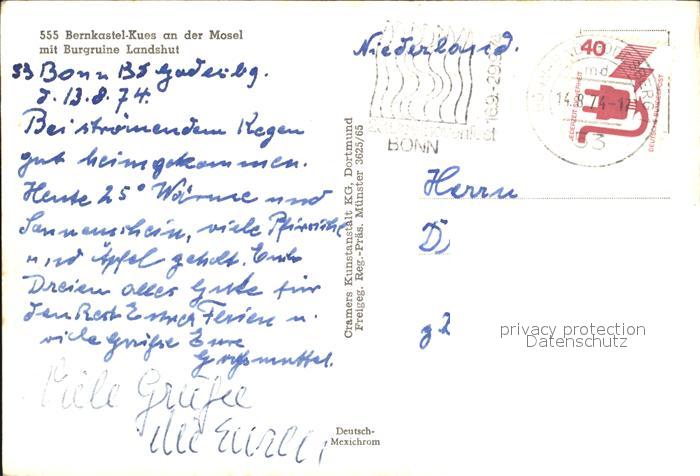 555 Bernkastel-Kues an der Mosel
mit Burgruine Landshut
53 Bonn BS Godesbg.
d. 13.8.74.
Bei strömendem Regen
gut heimgekommen.
Heute 25° Wärme und
Sonnenschein, viele Pfirsiche
und Äpfel geholt. Euch
Dreien alles Gute für
den Rest Eurer Ferien u.
viele Grüße Eure
Großmuttel.
Viele Grüße
Cramers Kunstanstalt KG, Dortmund
Freigeg. Reg.-Präs. Münster 3625/65
Deutsch-
Mexichrom
Niederland.
BONN
14.8.74-1
53
md
40
JEDERZEIT SICHERHEIT
DEUTSCHE BUNDESPOST
Herrn
D
privacy protection
Datenschutz